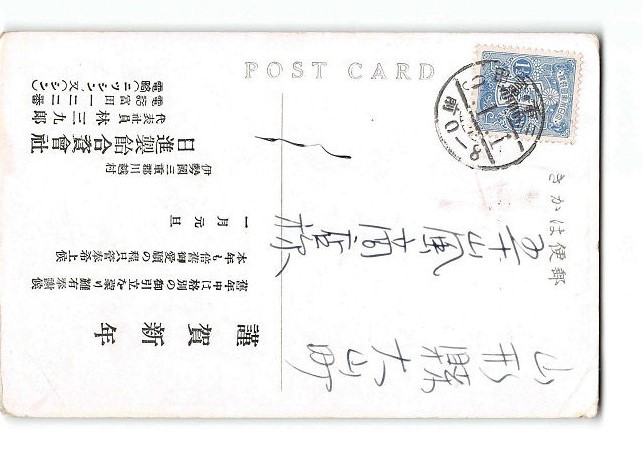 POST CARD
郵便はかき
山形縣大山町
商店様
謹賀新年
舊年中は格別の御引立を蒙り難有奉謝候
本年も倍舊御愛顧の程只管奉希上候
一月元旦
伊勢國三重郡川越村
日進製飴合資會社
代表社員 林三九郎
電話富田一二二番
前0-8